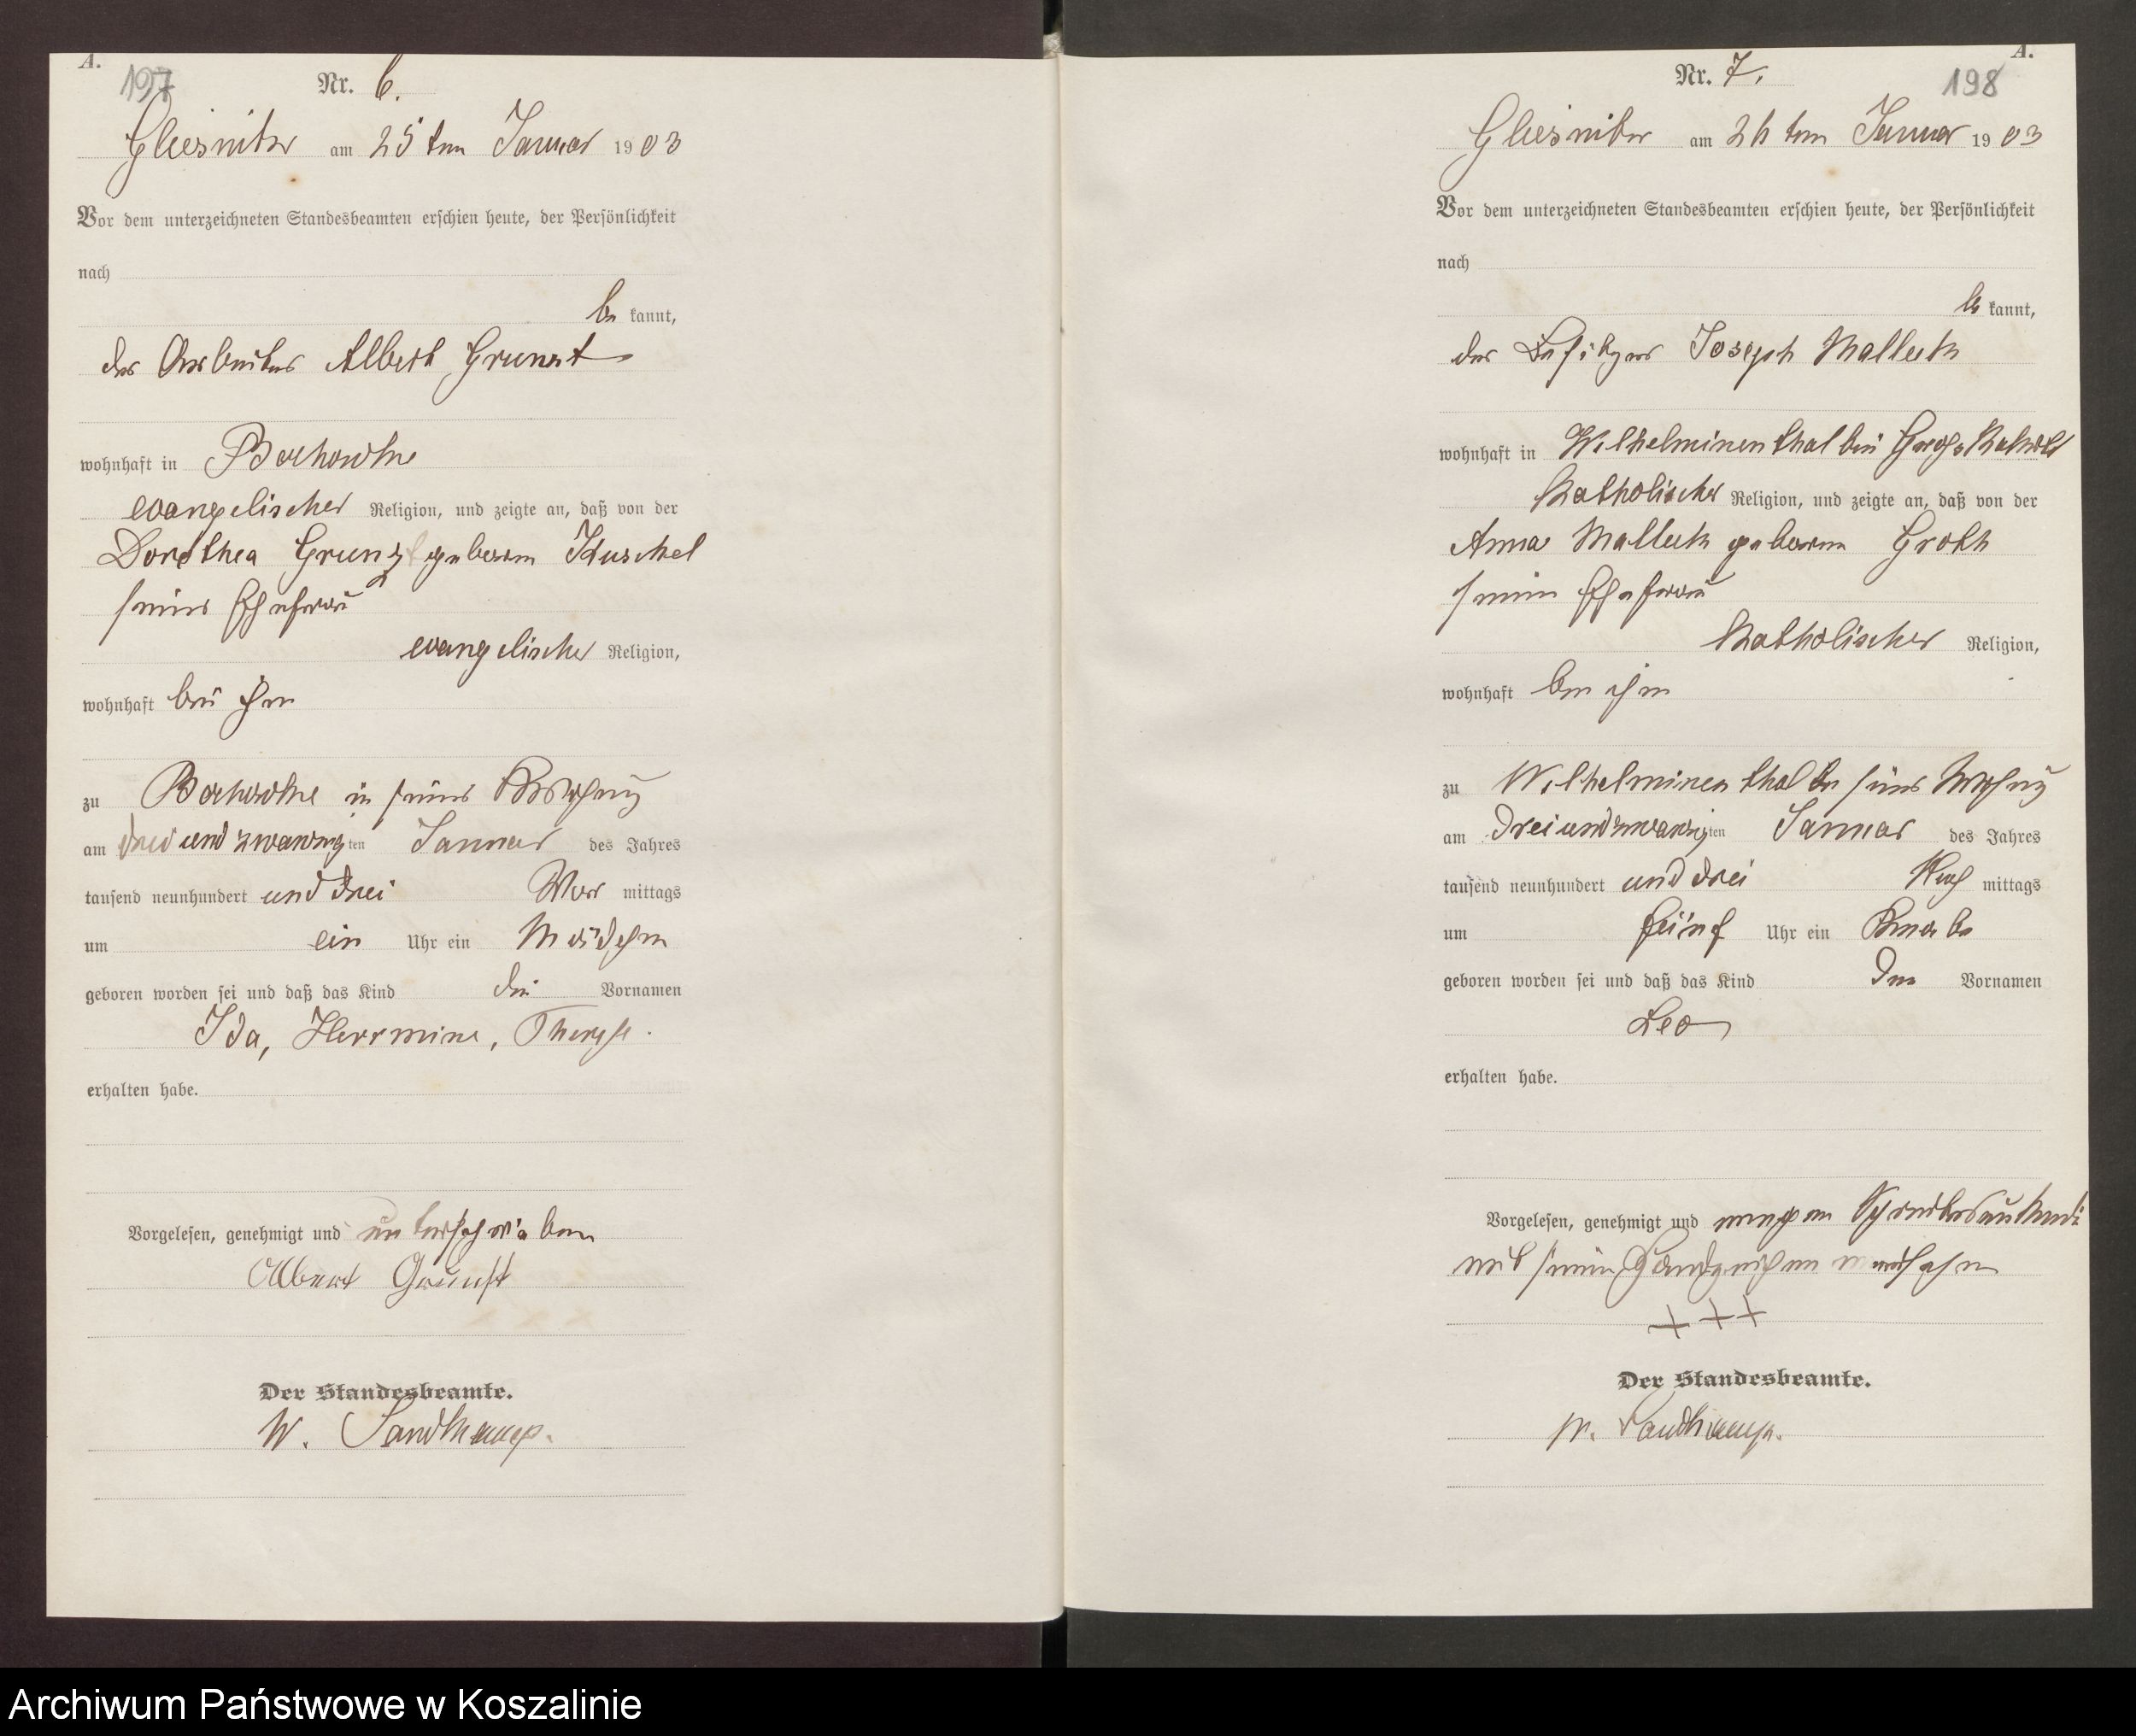 A.
197
Nr. 6.
Gliesnitz am 25ten Januar 1903
Vor dem unterzeichneten Standesbeamten erschien heute, der Persönlichkeit
nach
be kannt,
der Arbeiter Albert Grunst
wohnhaft in Bochowke
evangelischer Religion, und zeigte an, daß von der
Dorothea Grunst geboren Kuschel
seiner Ehefrau
evangelischer Religion,
wohnhaft bei ihm
zu Bochowke in seiner Wohnung
am drei und zwanzigten Januar des Jahres
tausend neunhundert und drei Vor mittags
um ein Uhr ein Mädchen
geboren worden sei und daß das Kind die Vornamen
Ida, Herrmine, Therese.
erhalten habe.
Vorgelesen, genehmigt und unterschrieben
Albert Grunst
Der Standesbeamte.
W. Sandkamp.
A.
198
Nr. 7.
Gliesnitz am 26ten Januar 1903
Vor dem unterzeichneten Standesbeamten erschien heute, der Persönlichkeit
nach
be kannt,
der Besitzer Joseph Malleck
wohnhaft in Wilhelminenthal bei Groß
Katholischer Religion, und zeigte an, daß von der
Anna Malleck geboren Groth
seiner Ehefrau
Katholischer Religion,
wohnhaft bei ihm
zu Wilhelminenthal in seiner Wohnung
am dreiundzwanzigten Januar des Jahres
tausend neunhundert und drei Nach mittags
um fünf Uhr ein Knabe
geboren worden sei und daß das Kind den Vornamen
Leo
erhalten habe.
Vorgelesen, genehmigt und wegen Schreibensunkunde
mit seinen Handzeichen versehen
+++
Der Standesbeamte.
W. Sandkamp.
Archiwum Państwowe w Koszalinie